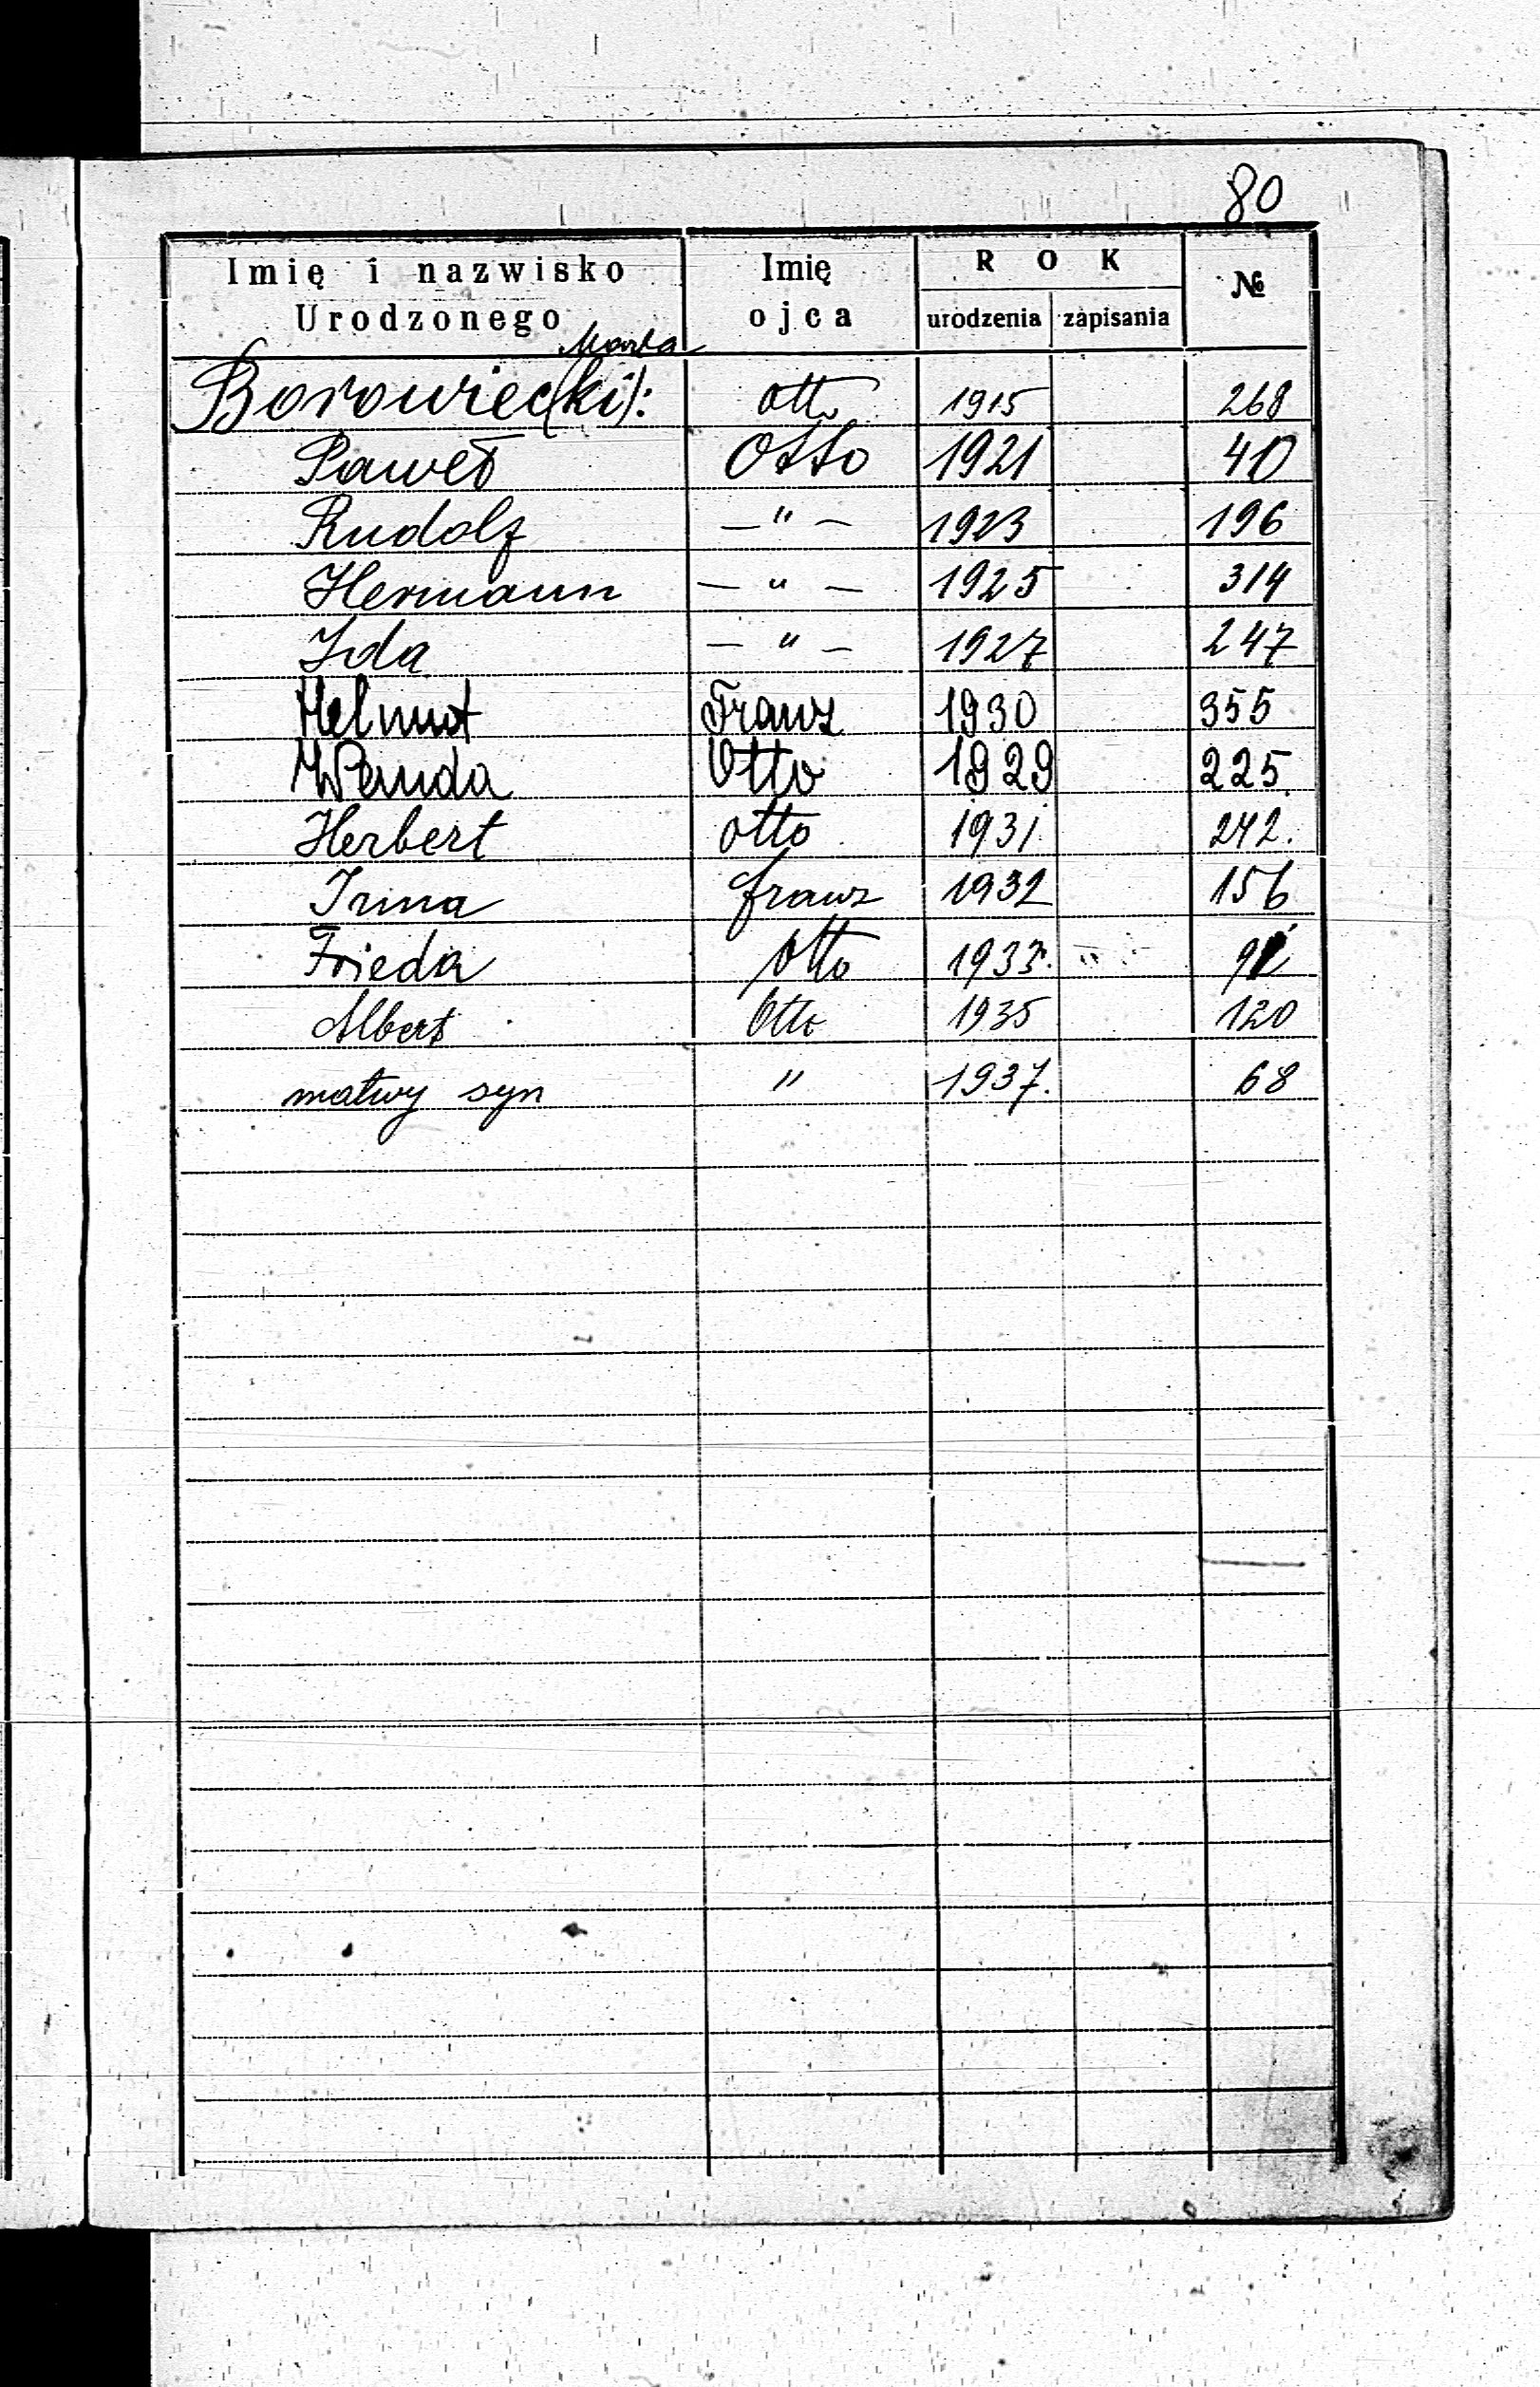 80
Imię i nazwisko Urodzonego Imię ojca ROK urodzenia zapisania №
Marta
Borowiec(ki): Otto 1915 268
Paweł Otto 1921 40
Rudolf —"— 1923 196
Hermann —"— 1925 314
Ida —"— 1927 247
Helmut Franz 1930 355
Wanda Otto 1929 225
Herbert Otto 1931 242.
Irma Franz 1932 156
Frieda Otto 1933.
Albert Otto 1935 120
matwy syn " 1937. 68